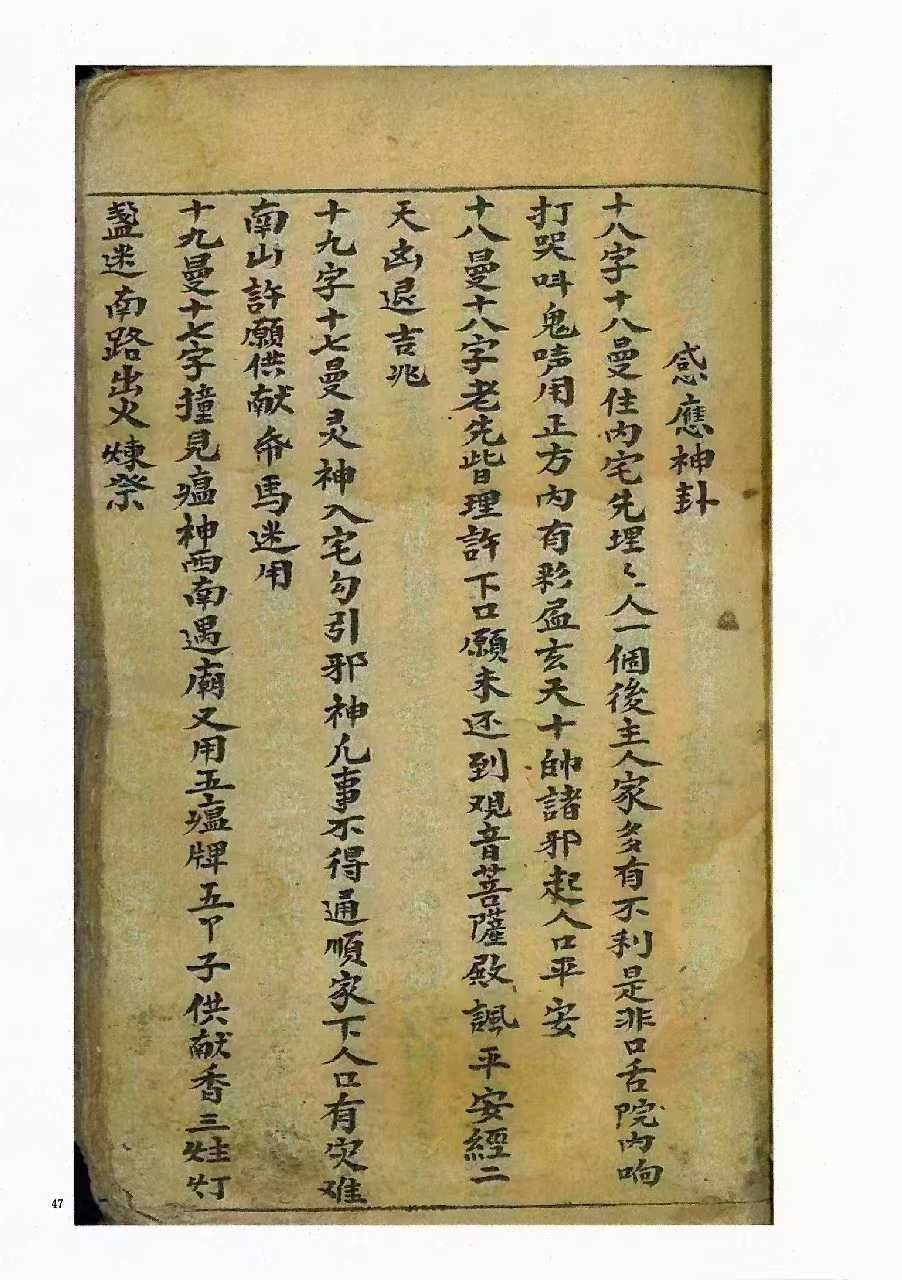 感應神卦
十八字十八曼住内宅先埋〻人一個後主人家多有不利是非口舌院内响
打哭呌鬼唣用正方内有彩盆玄天十帥諸邪起人口平安
十八曼十八字老先皆理許下口願未还到观音菩薩殿諷平安經二
天凶退吉兆
十九字十七曼灵神入宅勾引邪神凡事不得通順家下人口有灾难
南山許願供献帋馬迷用
十九曼十七字撞見瘟神西南遇廟又用五瘟牌五甲子供献香三炷灯
盞迷南路出火煉祭
47